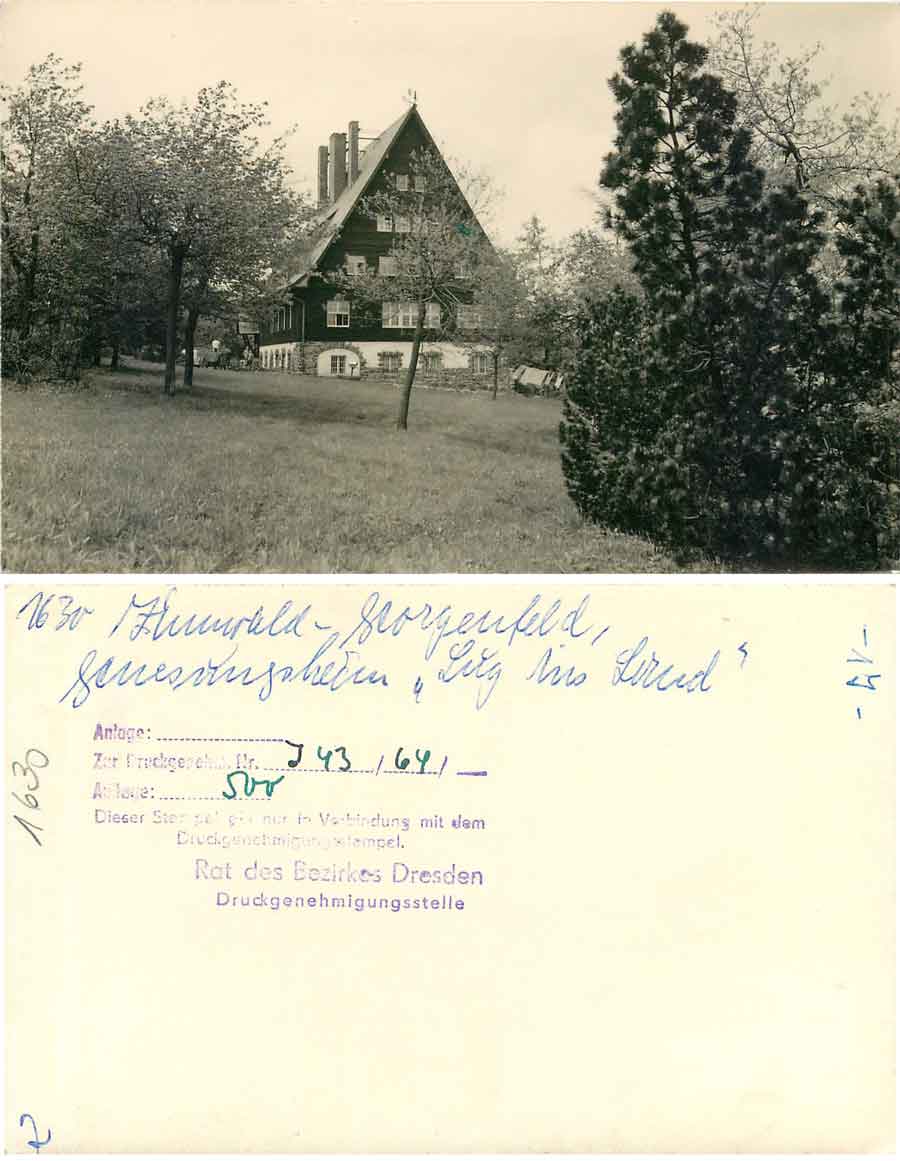 1630 Zinnwald-Georgenfeld,
Genesungsheim „Lug ins Land"
1630
Anlage:
Zur Druckgenehm. Nr. J 43/64/
Auflage: 500
Dieser Stempel gilt nur in Verbindung mit dem
Druckgenehmigungsstempel.
Rat des Bezirkes Dresden
Druckgenehmigungsstelle